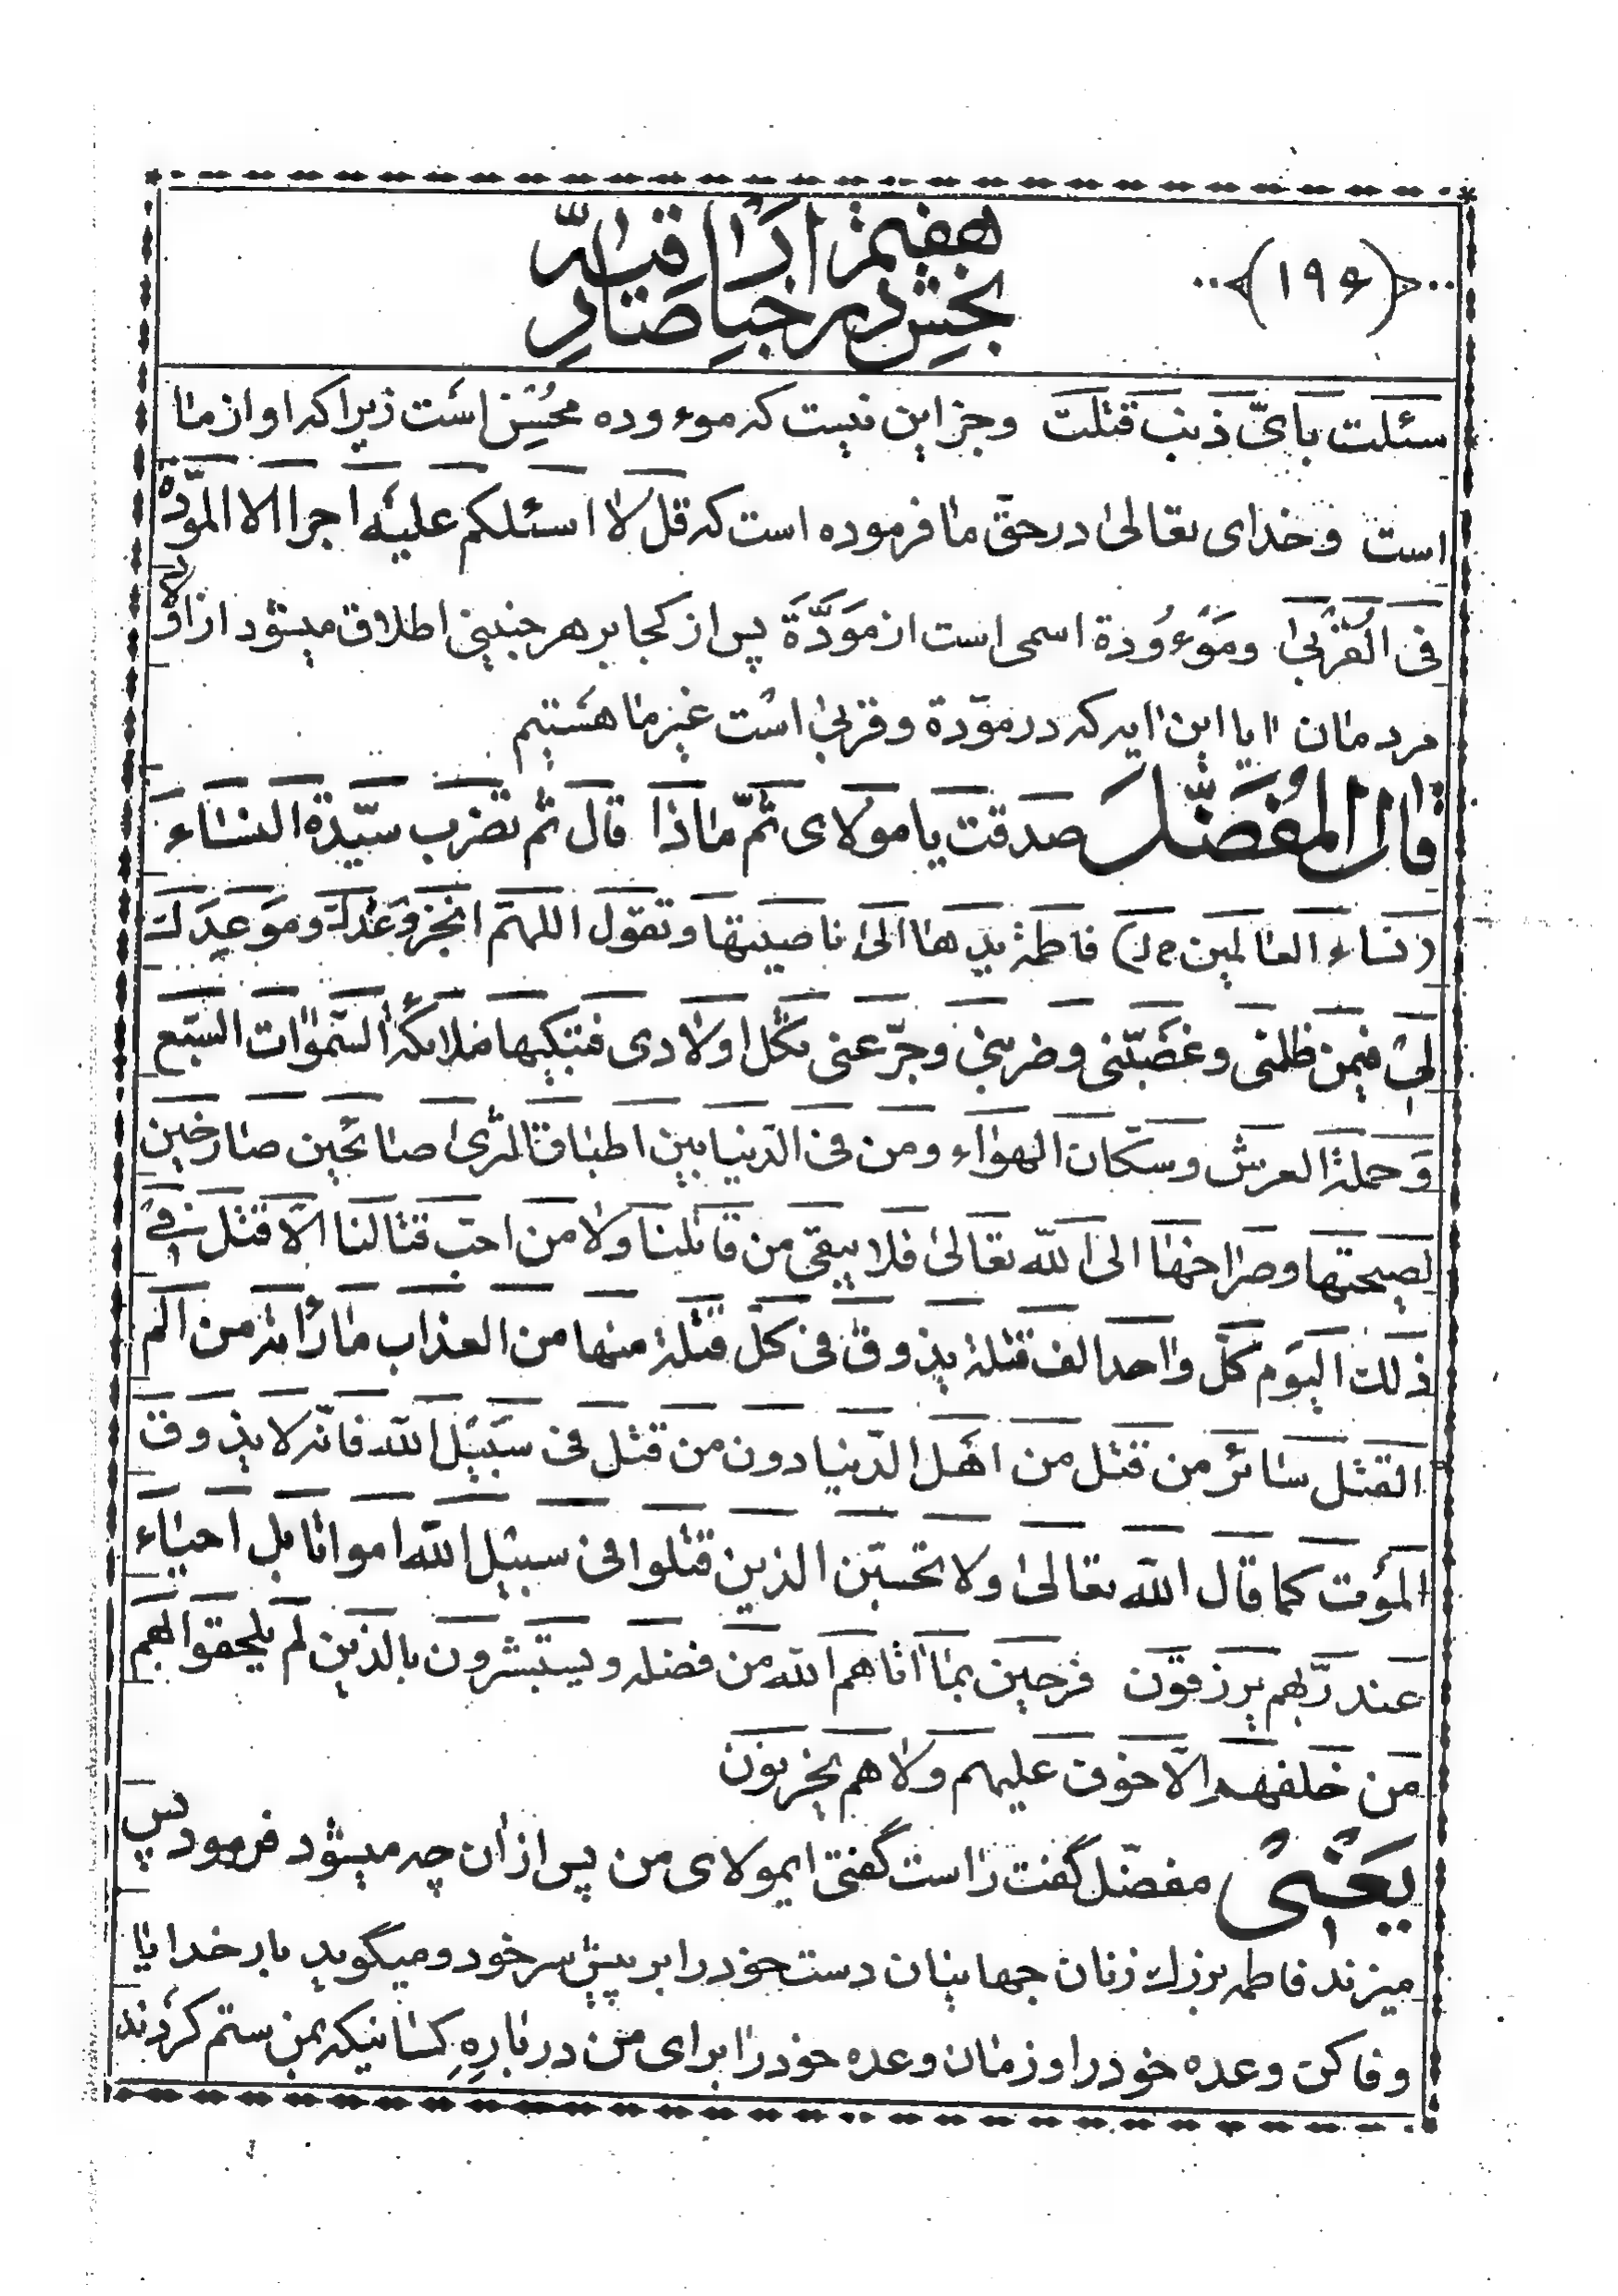 (۱۹۶)
بخش هفتم در اخبار صادقیه
سئلت بایّ ذنب قتلت وجز این نیست که موءوده محسن است زیرا که او از ما
است وخدای تعالی در حقّ ما فرموده است که قل لا اسئلکم علیه اجرا الا المودّة
فی القربی ومَوْءُودة اسمی است از مَوَدَّة پس از کجا بر هر جنینی اطلاق میشود از اولاد
مردمان ایا این ایه که در مودّة وقربی است غیر ما هستیم
قال المفضّل صدقت یا مولای ثمّ ماذا قال ثم تضرب سیّدة النساء
(نساء العالمین خ ل) فاطمة یدها الی ناصیتها وتقول اللهمّ انجز وعدک وموعدک
لی فیمن ظلمنی وغصبنی وضربنی وجرّعنی ثکل اولادی فتبکیها ملائکة السموات السبع
وحملة العرش وسکان الهواء ومن فی الدنیا بین اطباق الثری صائحین صارخین
لصیحتها وصراخها الی الله تعالی فلا یبقی من قاتلنا ولا من احب قتالنا الا قتل فی
ذلک الیوم کلّ واحد الف قتلة یذوق فی کلّ قتلة منها من العذاب ما رامه من الم
القتل سائر من قتل من اهل الدّنیا دون من قتل فی سبیل الله فانّه لا یذوق
الموت کما قال الله تعالی ولا تحسبن الذین قتلوا فی سبیل الله امواتا بل احیاء
عند ربّهم یرزقون فرحین بما اتاهم الله من فضله ویستبشرون بالذین لم یلحقوا بهم
من خلفهم الّا خوف علیهم ولا هم یحزنون
یعنی مفضّل گفت راست گفتی ایمولای من پس از ان چه میشود فرمود پس
میزند فاطمه بزرک زنان جهانیان دست خود را بر پیش سر خود ومیگوید بار خدایا
وفا کن وعده خود را وزمان وعده خود را برای من در باره کسانیکه بمن ستم کردند